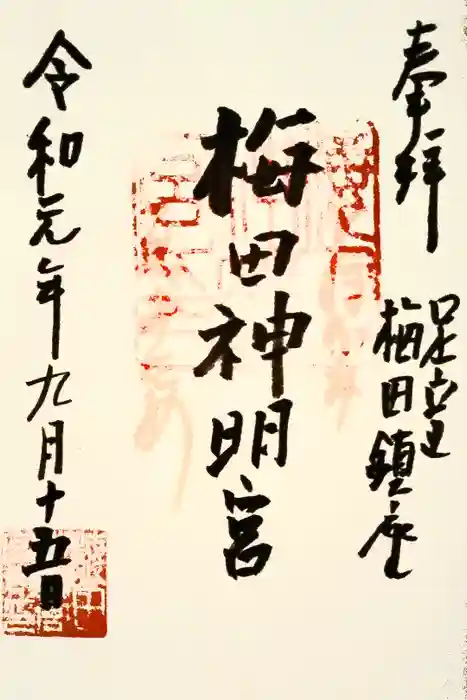 奉拝
足立
梅田鎮座
梅田神明宮
令和元年九月十五日